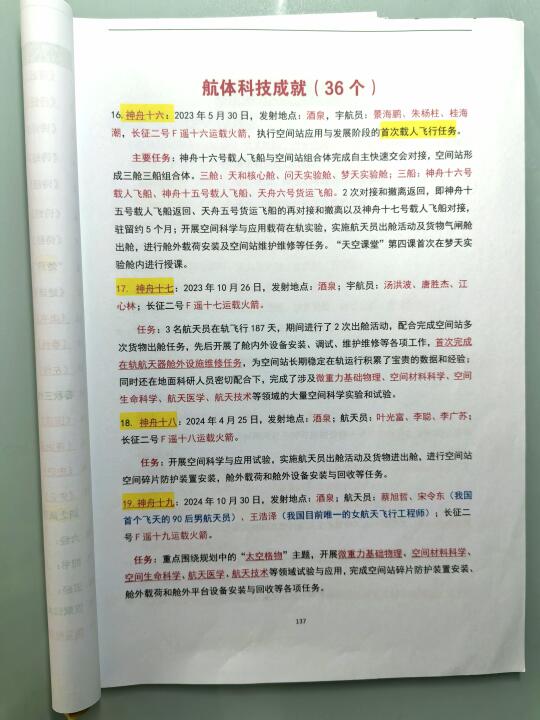 航体科技成就（36 个）
16. 神舟十六：2023 年 5 月 30 日，发射地点：酒泉，宇航员：景海鹏、朱杨柱、桂海
潮，长征二号 F 遥十六运载火箭，执行空间站应用与发展阶段的首次载人飞行任务。
主要任务：神舟十六号载人飞船与空间站组合体完成自主快速交会对接，空间站形
成三舱三船组合体。三舱：天和核心舱、问天实验舱、梦天实验舱；三船：神舟十六号
载人飞船、神舟十五号载人飞船、天舟六号货运飞船。2 次对接和撤离返回，即神舟十
五号载人飞船返回、天舟五号货运飞船的再对接和撤离以及神舟十七号载人飞船对接，
驻留约 5 个月；开展空间科学与应用载在轨实验，实施航天员出舱活动及货物气闸舱
出舱，进行舱外载荷安装及空间站维护维修等任务。“天空课堂”第四课首次在梦天实
验舱内进行授课。
17. 神舟十七：2023 年 10 月 26 日，发射地点：酒泉；宇航员：汤洪波、唐胜杰、江
心林；长征二号 F 遥十七运载火箭。
任务：3 名航天员在轨飞行 187 天，期间进行了 2 次出舱活动，配合完成空间站多
次货物出舱任务，先后开展了舱内外设备安装、调试、维护维修等各项工作，首次完成
在轨航天器舱外设施维修任务，为空间站长期稳定在轨运行积累了宝贵的数据和经验；
同时还在地面科研人员密切配合下，完成了涉及微重力基础物理、空间材料科学、空间
生命科学、航天医学、航天技术等领域的大量空间科学实验和试验。
18. 神舟十八：2024 年 4 月 25 日，发射地点：酒泉；航天员：叶光富、李聪、李广苏；
长征二号 F 遥十八运载火箭。
任务：开展空间科学与应用试验，实施航天员出舱活动及货物进出舱，进行空间站
空间碎片防护装置安装，舱外载荷和舱外设备安装与回收等任务。
19. 神舟十九：2024 年 10 月 30 日，发射地点：酒泉；航天员：蔡旭哲、宋令东（我国
首个飞天的 90 后男航天员）、王浩泽（我国目前唯一的女航天飞行工程师）；长征二
号 F 遥十九运载火箭。
任务：重点围绕规划中的“太空格物”主题，开展微重力基础物理、空间材料科学、
空间生命科学、航天医学、航天技术等领域试验与应用，完成空间站碎片防护装置安装、
舱外载荷和舱外平台设备安装与回收等各项任务。
137